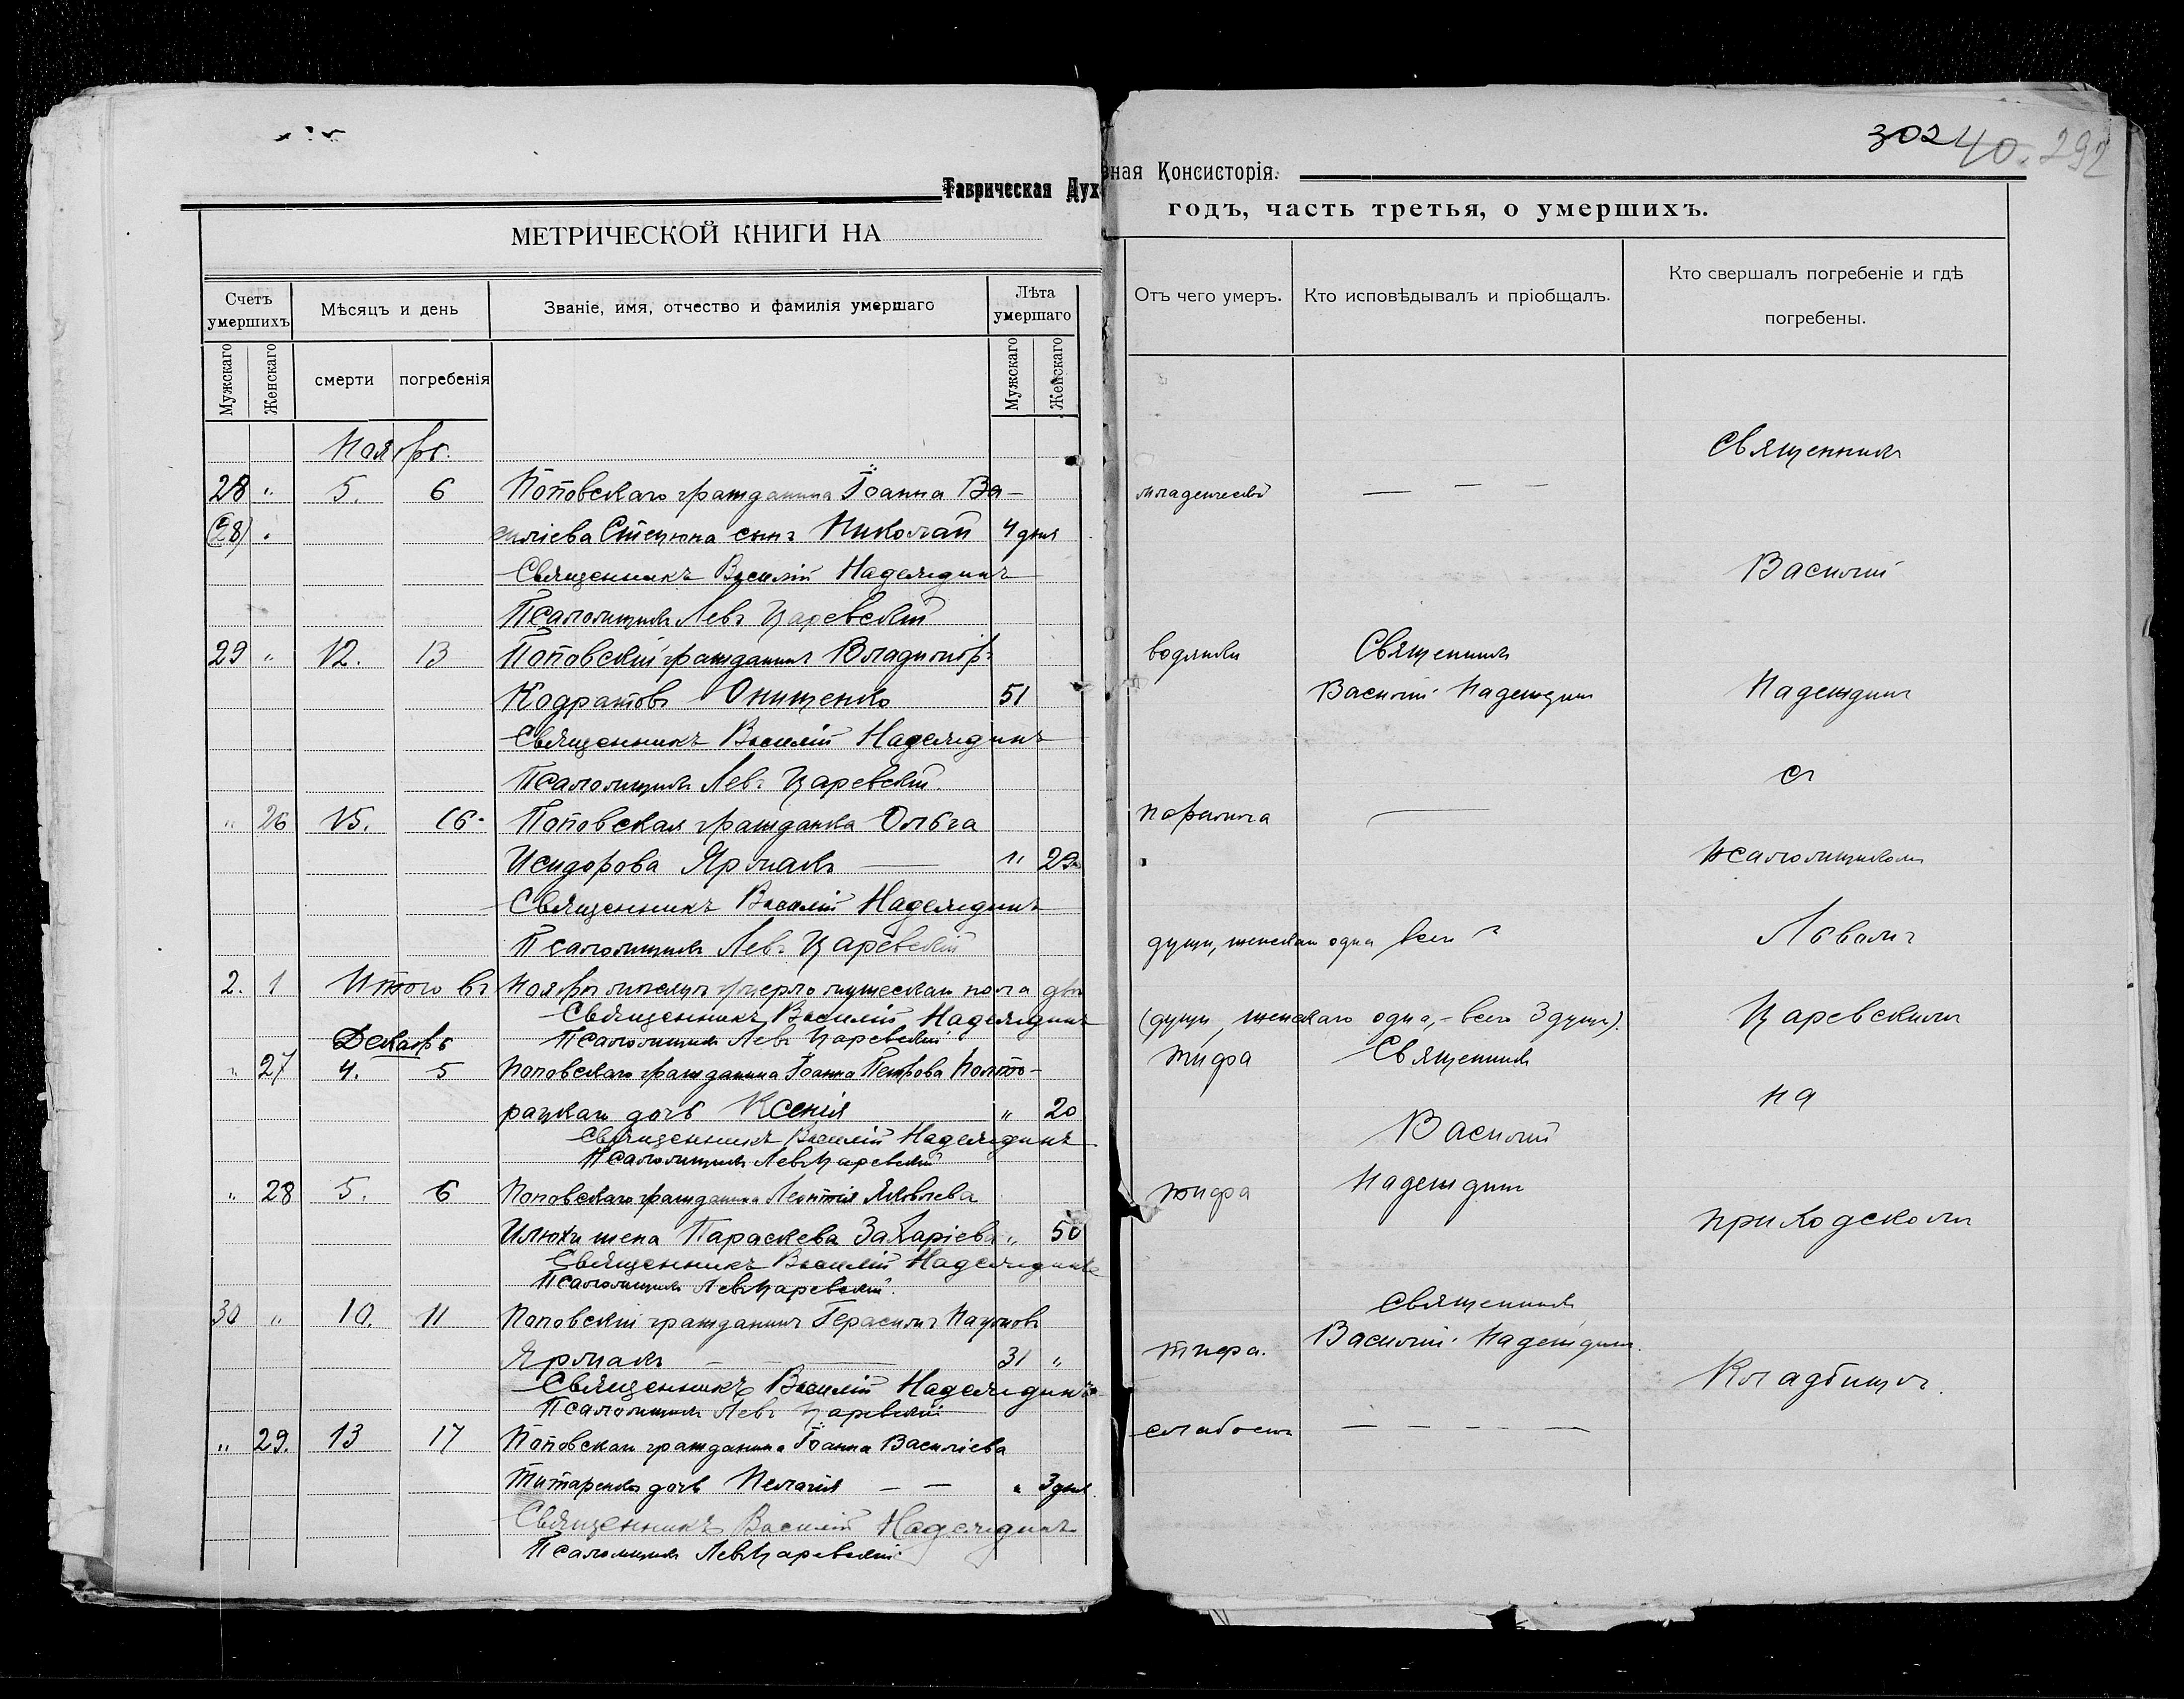 302 40. 292
Таврическая Духовная Консисторія.
МЕТРИЧЕСКОЙ КНИГИ НА
годъ, часть третья, о умершихъ.
Счетъ умершихъ
Мѣсяцъ и день
Званіе, имя, отчество и фамилія умершаго
Лѣта умершаго
Отъ чего умеръ.
Кто исповѣдывалъ и пріобщалъ.
Кто свершалъ погребеніе и гдѣ
погребены.
Мужскаго
Женскаго
смерти
погребенія
Мужскаго
Женскаго
Ноябрь.
28 " 5. 6 Поповскаго гражданина Іоанна Ва-
(28) силіева сынъ Николай 4 дня
Священникъ Василій Надеждинъ
Псаломщикъ Левъ Царевскій
29 " 12. 13 Поповскій гражданинъ Владиміръ водянки Священникъ
Кодратовъ Онищенко 51 Василій Надеждинъ
Священникъ Василій Надеждинъ
Псаломщикъ Левъ Царевскій.
" 26 15. 16. Поповская гражданка Ольга
Исидорова Ярмакъ — "
Священникъ Василій Надеждинъ
Псаломщикъ Левъ Царевскій
2. 1 Итого въ Ноябрѣ месяцѣ умерло мужескаго пола двѣ
души, женскаго одна всего
Священникъ Василій Надеждинъ (души, женскаго одна, - всего 3 души).
Псаломщикъ Левъ Царевскій
Декабрь
" 27 4. 5 Поповскаго гражданина Іоанна Петрова Полто- тифа Священникъ
рацкаго дочь Ксенія " 20 Василій
Священникъ Василій Надеждинъ
Псаломщикъ Левъ Царевскій
" 28 5. 6 Поповскаго гражданина Леонтія Яковлева тифа Надеждинъ
Илюхи жена Параскева Захаріева " 50
Священникъ Василій Надеждинъ
Псаломщикъ Левъ Царевскій.
30 " 10. 11 Поповскій гражданинъ Герасимъ Наумовъ Священникъ
Ярмакъ — 31 " тифа. Василій Надеждинъ.
Священникъ Василій Надеждинъ
Псаломщикъ Левъ Царевскій
" 29. 13 17 Поповскаго гражданина Іоанна Василіева слабости — — — —
Титаренко дочь Пелагія — — " 3 дня.
Священникъ Василій Надеждинъ
Псаломщикъ Левъ Царевскій
Священникъ
Василій
Надеждинъ
съ
псаломщикомъ
Львомъ
Царевскимъ
на
приходскомъ
Кладбищѣ.